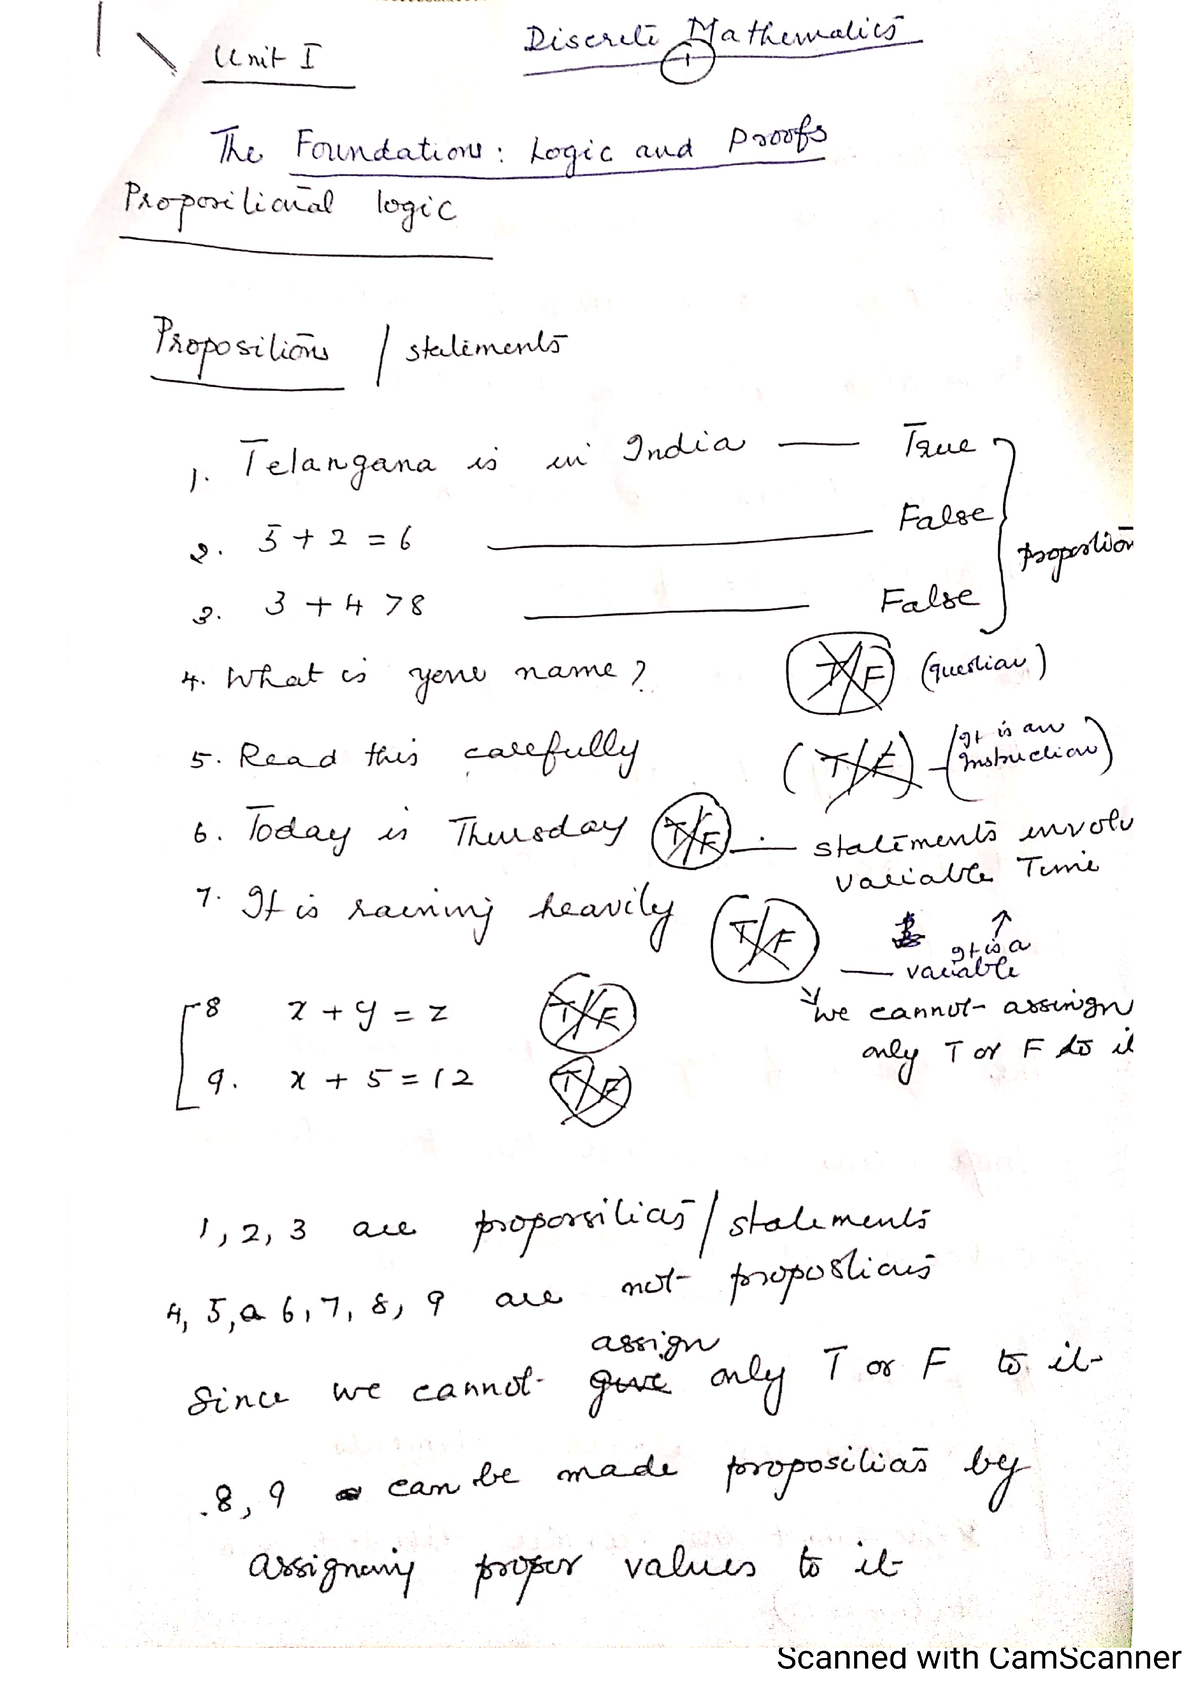 Unit I
Discrete Mathematics
1
The Foundations: Logic and Proofs
Propositional logic
Propositions / statements
1. Telangana is in India —— True
2. 5 + 2 = 6 —— False
3. 3 + 4 > 8 —— False
propostion
4. What is your name? T/F (question)
5. Read this carefully (T/F) - (It is an Instruction)
6. Today is Thursday T/F — statements involv
variable Time
7. It is raining heavily T/F
↑
It is a
— variable
we cannot assingn
only T or F to it
8 x + y = z T/F
9. x + 5 = 12 T/F
1, 2, 3 are proporsitios / statements
4, 5, 6, 7, 8, 9 are not propostions
assign
Since we cannot give only T or F to it
8, 9 can be made propositios by
assigning proper values to it
Scanned with CamScanner